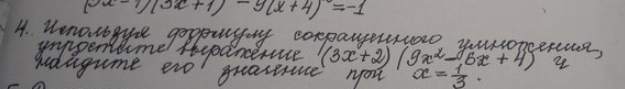 (3x-1)(3x+1) - 9(x+4)² = -1
4. Используя формулу сокращенного умножения,
упростите выражение (3x+2)(9x²-6x+4) и
найдите его значение при x=1/3.